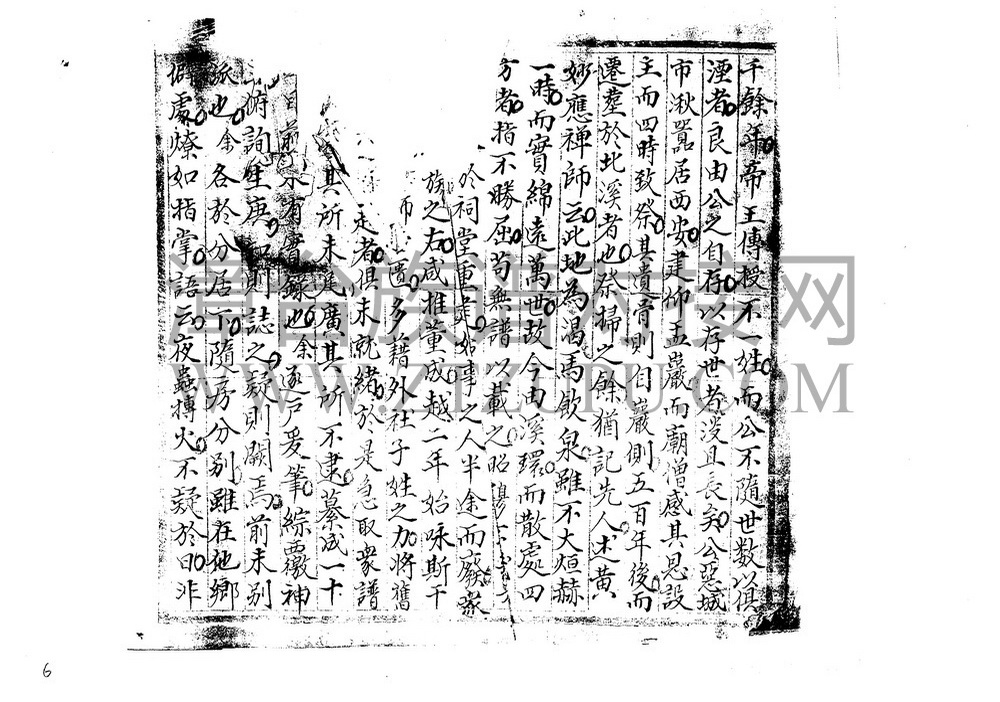 千餘年帝王傳授不一姓而公不隨世數以俱
湮者良由公之自存以存世者淡且長矣公惡城
市湫囂居西安建仰盂巖而廟僧感其恩設
主而四時致祭其遺骨則自巖側五百年後而
遷塟於北溪者也祭掃之餘猶記先人术黃
妙應禪師云此地為渴馬飲泉雖不大烜赫
一時而實綿遠萬世故今由溪環而散處四
方者指不勝屈苟無譜以載之昭
於祠堂重建始事之人半途而廢
族之右咸推董成越二年始咏斯干
而 匱多藉外社子姓之力將舊
走者俱未就緒於是急取衆譜
其所未廣其所不逮纂成一十
日前 有實錄也余逐戸爰筆綜覈神
詢生庚 則誌之疑則闕焉前未別
派也余各於分居下隨房分別雖在他鄉
僻處燎如指掌語云夜蟲摶火不疑於日非
清台族譜对接网
WWW.ZTZUPU.COM
6